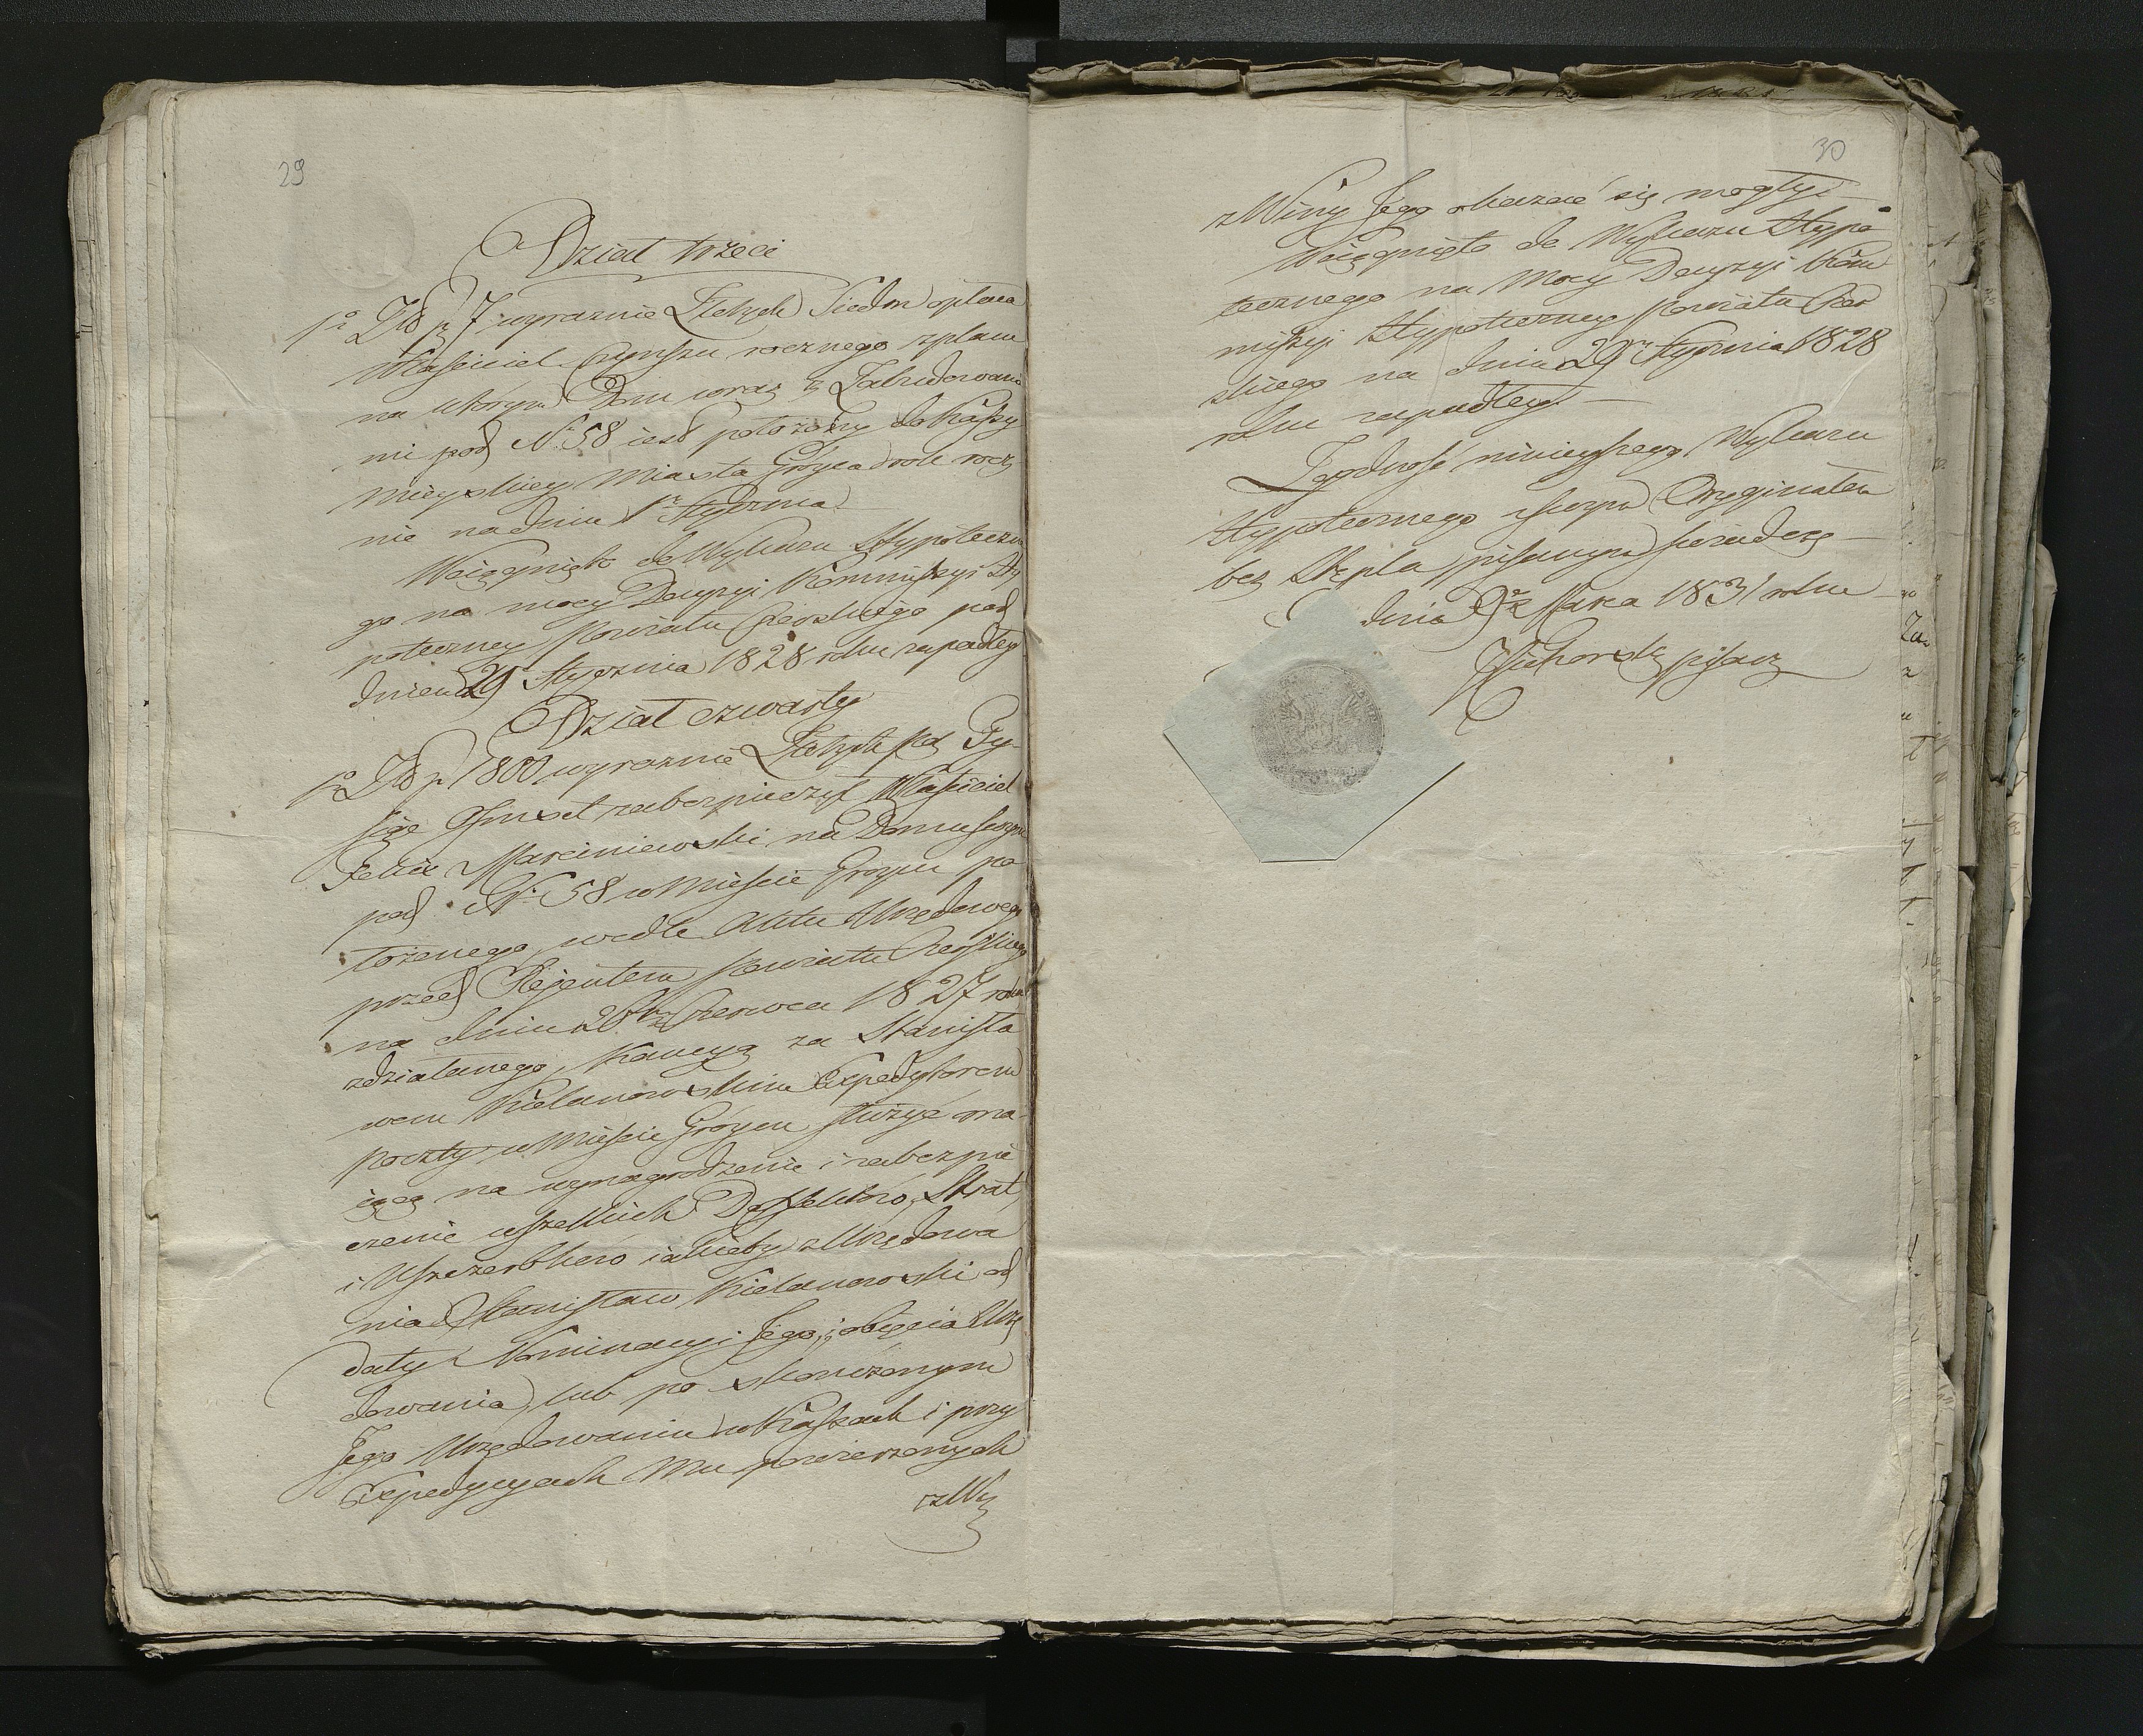 29
Dział trzeci
1o Złp 7 wyraźnie Złotych Siedm opłaca
Właściciel Czynszu rocznego z placu
na którym Dom wraz z Zabudowania
mi pod No 58 jest położony do Kassy
Mieyskiey Miasta Gróyca rok rocz
nie na dniu 1m Stycznia
Wciągnięto do Wykazu Hypoteczne
go na mocy Decyzyi Kommissyi Hy
poteczney Powiatu Czerskiego pod
dniem 29 Stycznia 1828 roku zapadłey
Dział czwarty
1o Złp 1800 wyraźnie Złotych Pol Ty-
siąc Ośmset zabezpieczył Właściciel
Felix Marciniewski na Domu swym
pod No 58 w Mieście Gróycu po
łożonego, wedle Aktu Urzędowego
przed Rejentem Powiatu Czerskiego
na dniu Czerwca 1827 roku
zdziałanego, Kaucyą za Stanisła
wem Kielanowskim Expedytorem
Poczty w Mieście Gróycu służyć ma-
iącą na wynagrodzenie i zabezpie
czenie wszelkich Defektów, Strat,
i Uszczerbków iakieby z Urzędowa
nia Stanisław Kielanowski od
daty Nominacyi Jego, i obięcia Urzę
dowania, lub po skończonym
Jego Urzędowaniu w Kassach i przy
Expedycyach Mu powierzonych
z Wi
30
z Winy Jego okazać się mogły.
Wciągnięto do Wykazu Hypo
tecznego na Mocy Decyzyi Kom
missyi Hypoteczney Powiatu Czer
skiego na dniu 29m Stycznia 1828
roku zapadłey.
Zgodność ninieyszego Wykazu
Hypotecznego z swym Oryginałem
bez Stępla pisanym, świadczę
dnia Marca 1831 roku
pisarz